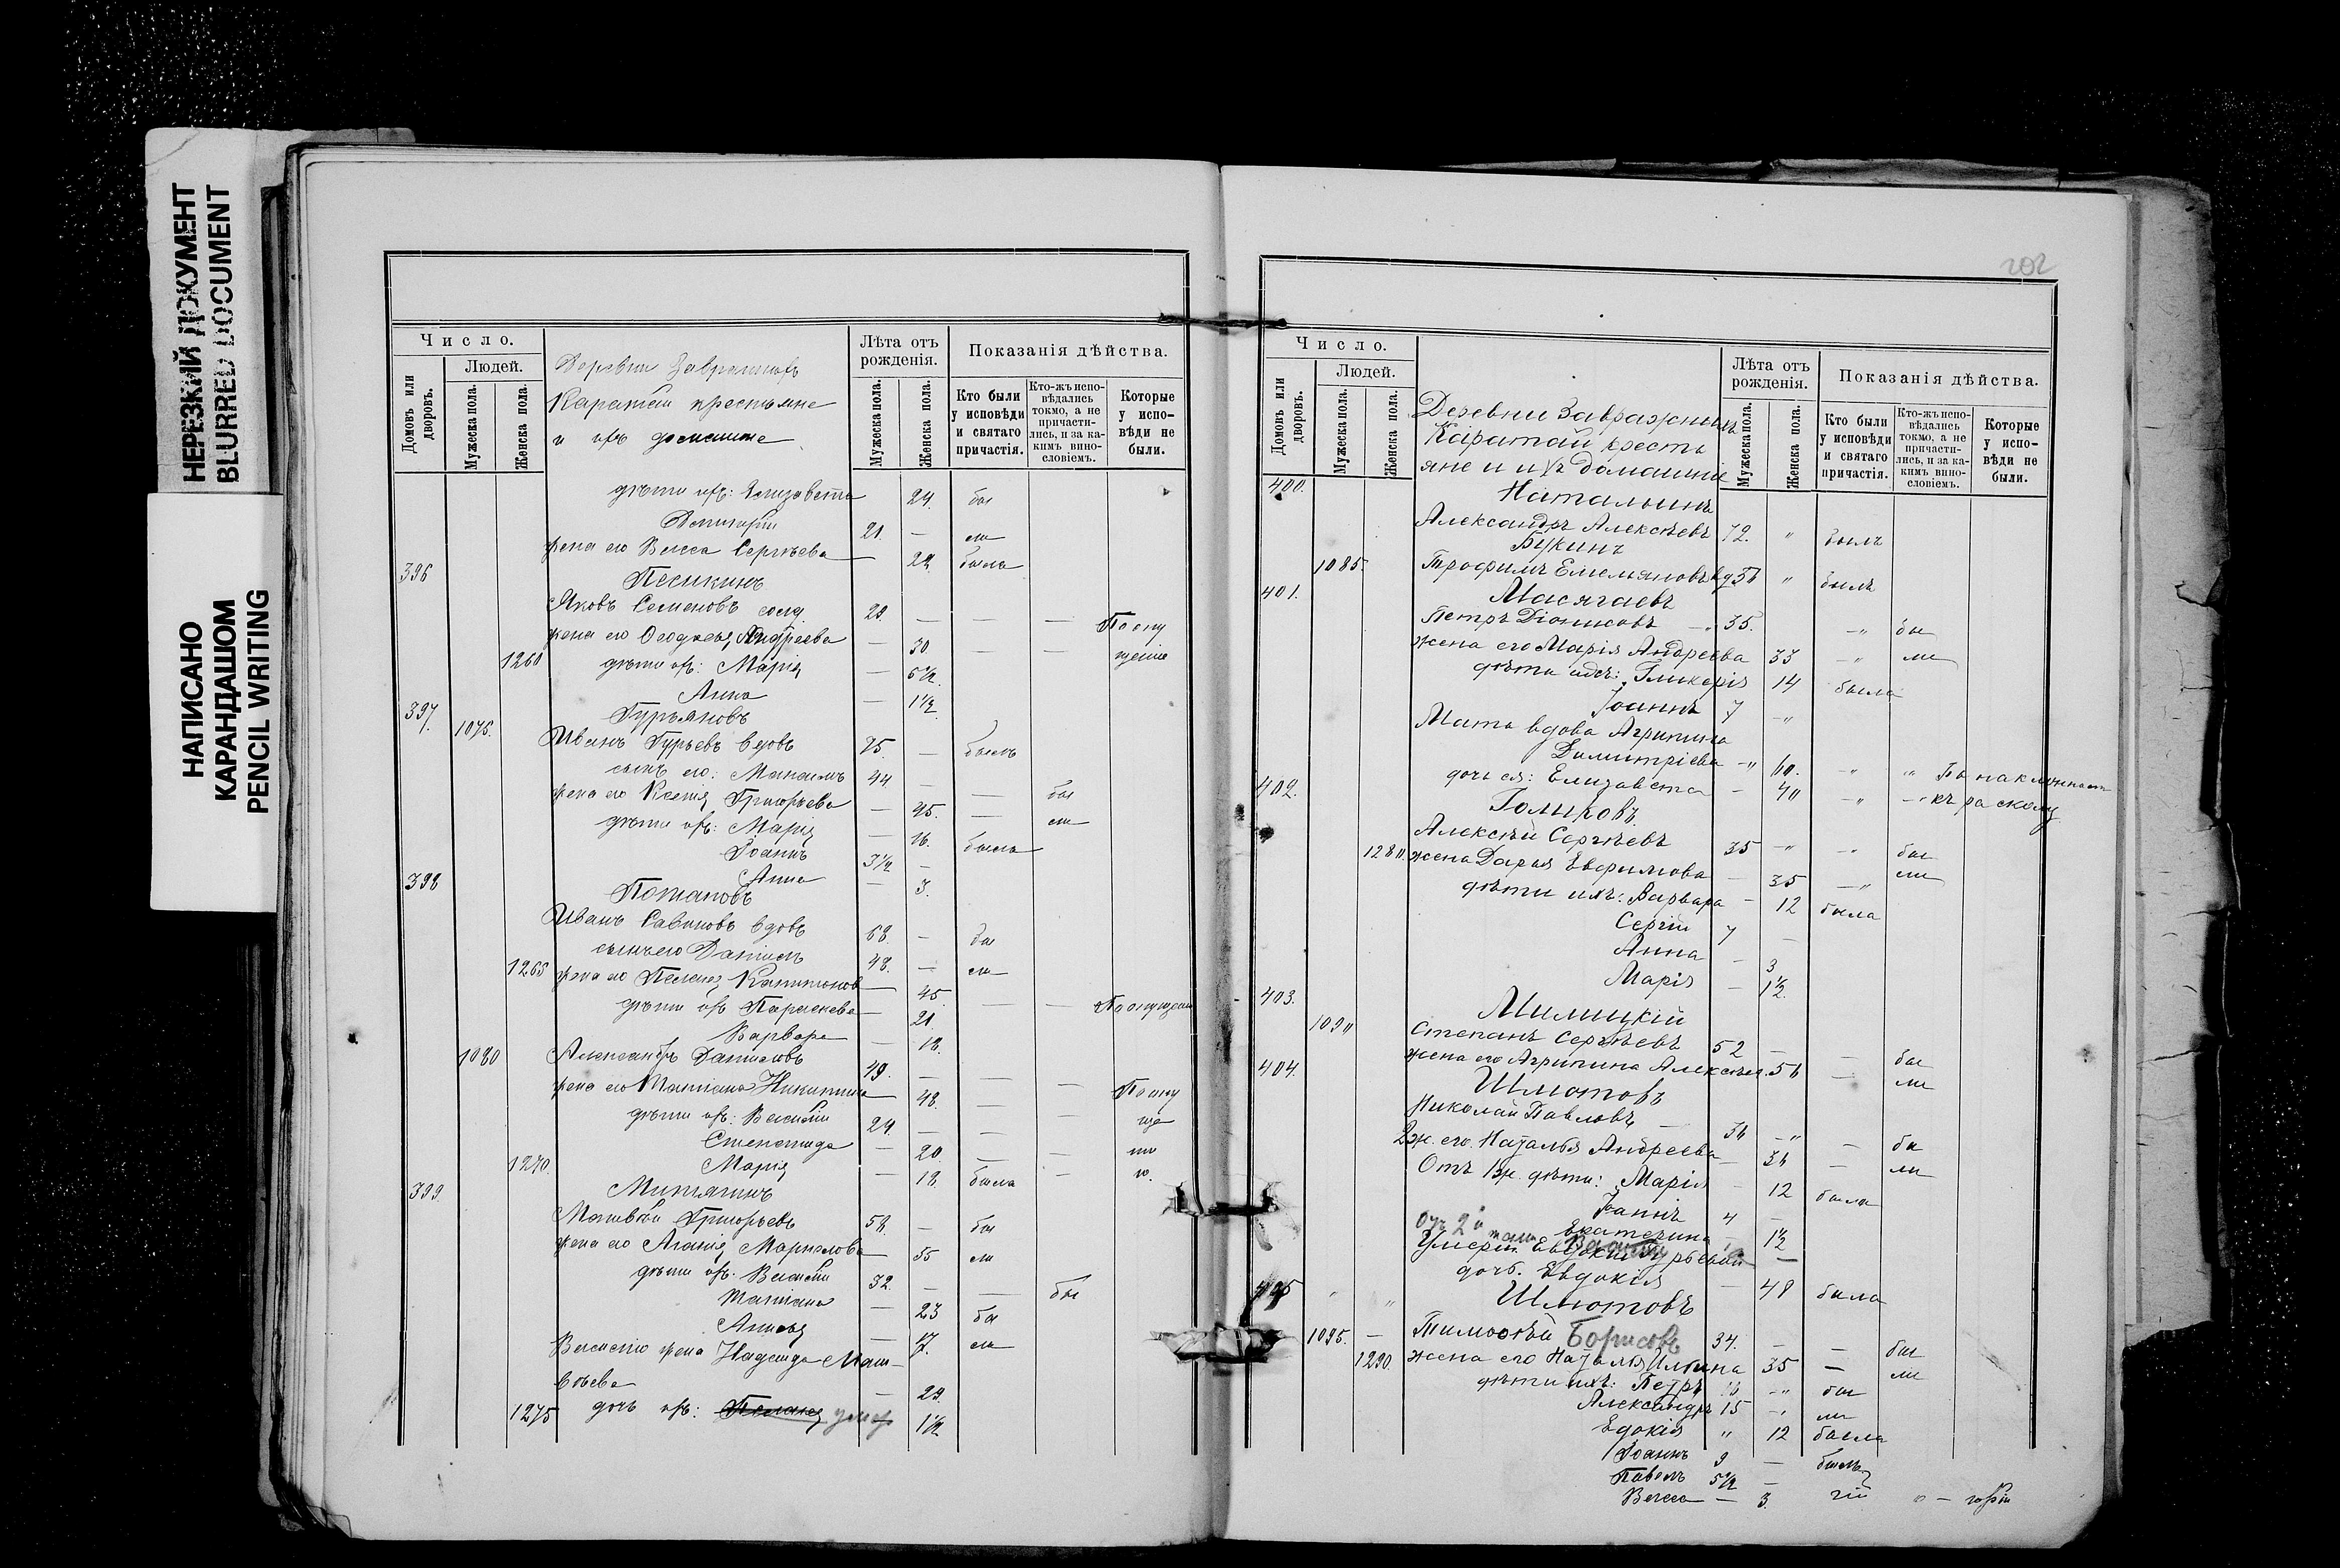 НЕРЕЗКИЙ ДОКУМЕНТ
BLURRED DOCUMENT
НАПИСАНО
КАРАНДАШОМ
PENCIL WRITING
Число.
Людей.
Домовъ или дворовъ.
Мужеска пола.
Женска пола.
Деревни
Каратай крестьяне
и ихъ домашніе
Лѣта отъ рожденія.
Мужеска пола.
Женска пола.
Показанія дѣйства.
Кто были у исповѣди и святаго причастія.
Кто-жъ исповѣдались токмо, а не причастились, и за какимъ винословіемъ.
Которые у исповѣди не были.
дѣти ихъ: Елизавета 24. бы
Димитрій 21. — ли
жена его Васса Сергѣева 22 была
396 Песикинъ
Яковъ Семеновъ солд. 29. — — — По опу
жена его Ѳеодосія Андреева — 30 — — щенію
1260 дѣти ихъ: Марія — 5½.
Анна — 1½
397. Гурьяновъ
1075. Иванъ Гурьевъ вдовъ 75. — былъ
сынъ его: Максимъ 44 — — бы
жена его Ксенія Григорьева — 45. — ли
дѣти ихъ: Марія — 16. была
Іоаннъ 3½ —
Анна — 3.
398 Потаповъ
Иванъ Савиновъ вдовъ 68. — бы
сынъ его Даніилъ 48. — ли
1265 жена его Пелагія Капитонов — 45. — — По опущен
дѣти ихъ Параскева — 21
Варвара — 18.
1080 Александръ Даніиловъ 49. — — —
жена его Татіана Никитина 48. — — По опу
дѣти ихъ: Василій 24. — — ще
Степанида — 20. — — ні
1270. Марія — 18. была — ю.
399 Митягинъ
Матвѣй Григорьевъ 58. — бы
жена его Агаѳія Маркелова 55 ли
дѣти ихъ: Василій 32. — — бы
Татіана — 23 бы
Анисія — 17. ли
Василію жена Надежда Мат-
вѣева — 29.
1275 дочь ихъ: Пелагія умер 1½
202
Число.
Людей.
Домовъ или дворовъ.
Мужеска пола.
Женска пола.
Деревни Завражныхъ
Каратай кресть
яне и ихъ домашніе
Лѣта отъ рожденія.
Мужеска пола.
Женска пола.
Показанія дѣйства.
Кто были у исповѣди и святаго причастія.
Кто-жъ исповѣдались токмо, а не причастились, и за какимъ винословіемъ.
Которые у исповѣди не были.
400. Натальинъ
Александръ Алексѣевъ 72. " былъ
Букинъ
1085. Трофимъ Емельяновъ " былъ
401. Масягаевъ
Петръ Діонисовъ — 35. —" бы
жена его Марія Андреева 33 —" ли
дѣти ихъ: Гликерія 14 была
Іоаннъ 7 —"
Мать вдова Агрипина
Димитріева —" 60. —" " По наклонности
дочь ея: Елизавета — 40 —" —" къ расколу
402. Голиковъ.
Алексѣй Сергѣевъ 35 —" —" бы
1280. жена Дарья Евфимова — 35 —" ли
дѣти ихъ: Варвара — 12 была
Сергій 7 —
Анна — 3
Марія — 1½.
403. Милицкій
1090 Степанъ Сергѣевъ 52 — — бы
жена его Агрипина Алексѣев. 56 — ли
404. Шмотовъ
Николай Павловъ — 36 —" — бы
2ж. его. Наталья Андреева — 36 — ли
Отъ 1ж. дѣти: Марія — 12 была
Іоаннъ 4 —
Отъ 2й Екатерина 1½
Умерш. Гурьевой —
дочь. Евдокія — 48 была
405 Шмотовъ
1095. — Тимоѳей Борисовъ 34. — — бы
1290. жена его Наталія Ильина 35 — ли
дѣти ихъ: Петръ —" бы
Александръ 15 —" ли
Едокія " 12 была
Іоаннъ 9 — былъ
Павелъ 5½ —
Васса — 3.